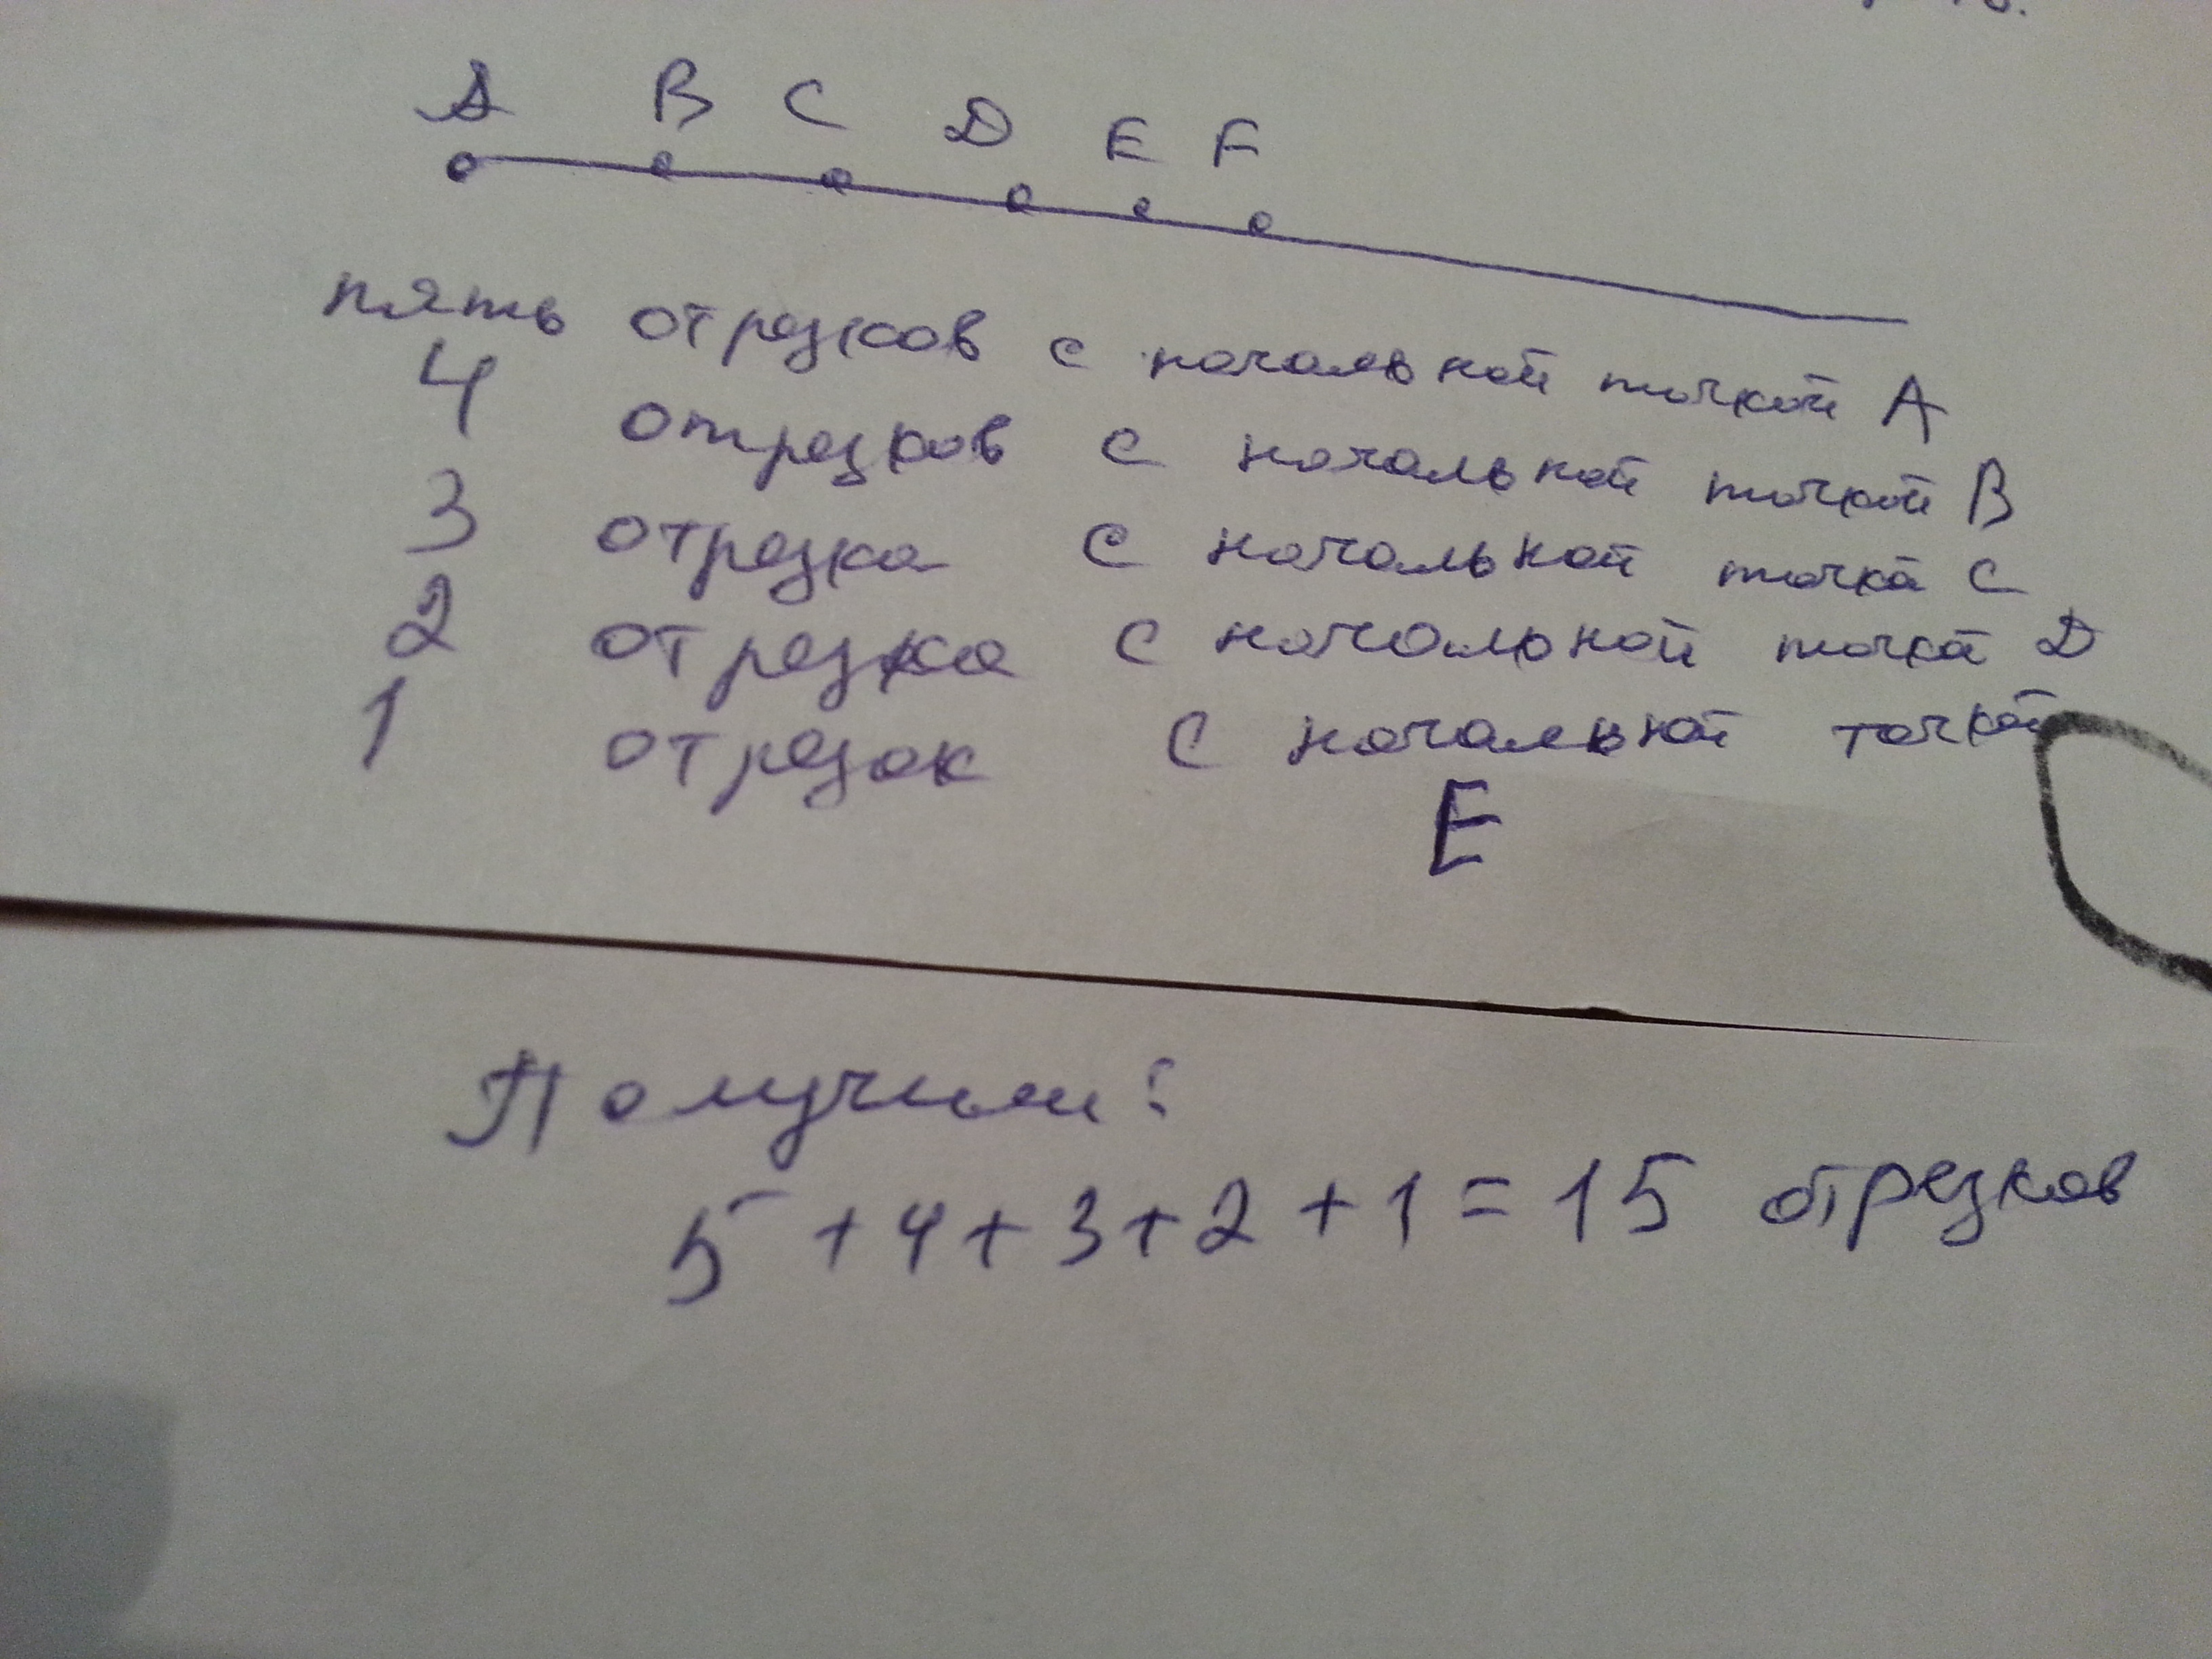 A B C D E F
пять отрезков с начальной точкой A
4 отрезков с начальной точкой B
3 отрезка с начальной точка C
2 отрезка с начальной точка D
1 отрезок с начальной точкой
E
Получим:
5 + 4 + 3 + 2 + 1 = 15 отрезков